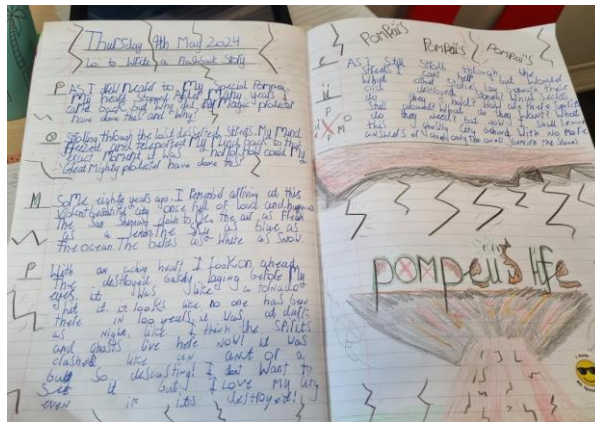 Thursday 9th May 2024
Lo to write a Flashback Story
P AS I drew near to My special Pompeii
My heart stopped. After many years I
came back but why did My Magic protected
have done this and Why?
O Strolling through the last deserted streets My Mind
Freezed and teleported My Mind back to that
exact Moment it was horrid, how could My
Great Mighty protected have done this
M Some eighty years ago, I remember arriving at this
Vibrant beautiful city once full of love and happiness
The Sun Shining down to be, the air as Fresh
as a lemon. The Sky as blue as
the ocean. The birds as white as snow.
P With an aching heart I look on ahead
The destroyed, laying before My
eyes. it was like a tornado
hit it. it looks like no one has been
there in 100 years, it was as dark
as night, like I think the Spirits
and ghosts live here now! it was
like an ant or a
but so descusting! I dont want to
See it but I LOVE My City
even if its destroyed!
Pompeii Pompeii's Pompeii's
AS I Still Stroll through the
streets I cant help but Wonder
What other Stories lay beneath their
old destroyed Sands, What Secrets
do they hold? How are these Spirits
Still around? What do they want? What
do they need? but now I Shall leave
this ghostly city behind With no More
answers of
pompeii's life